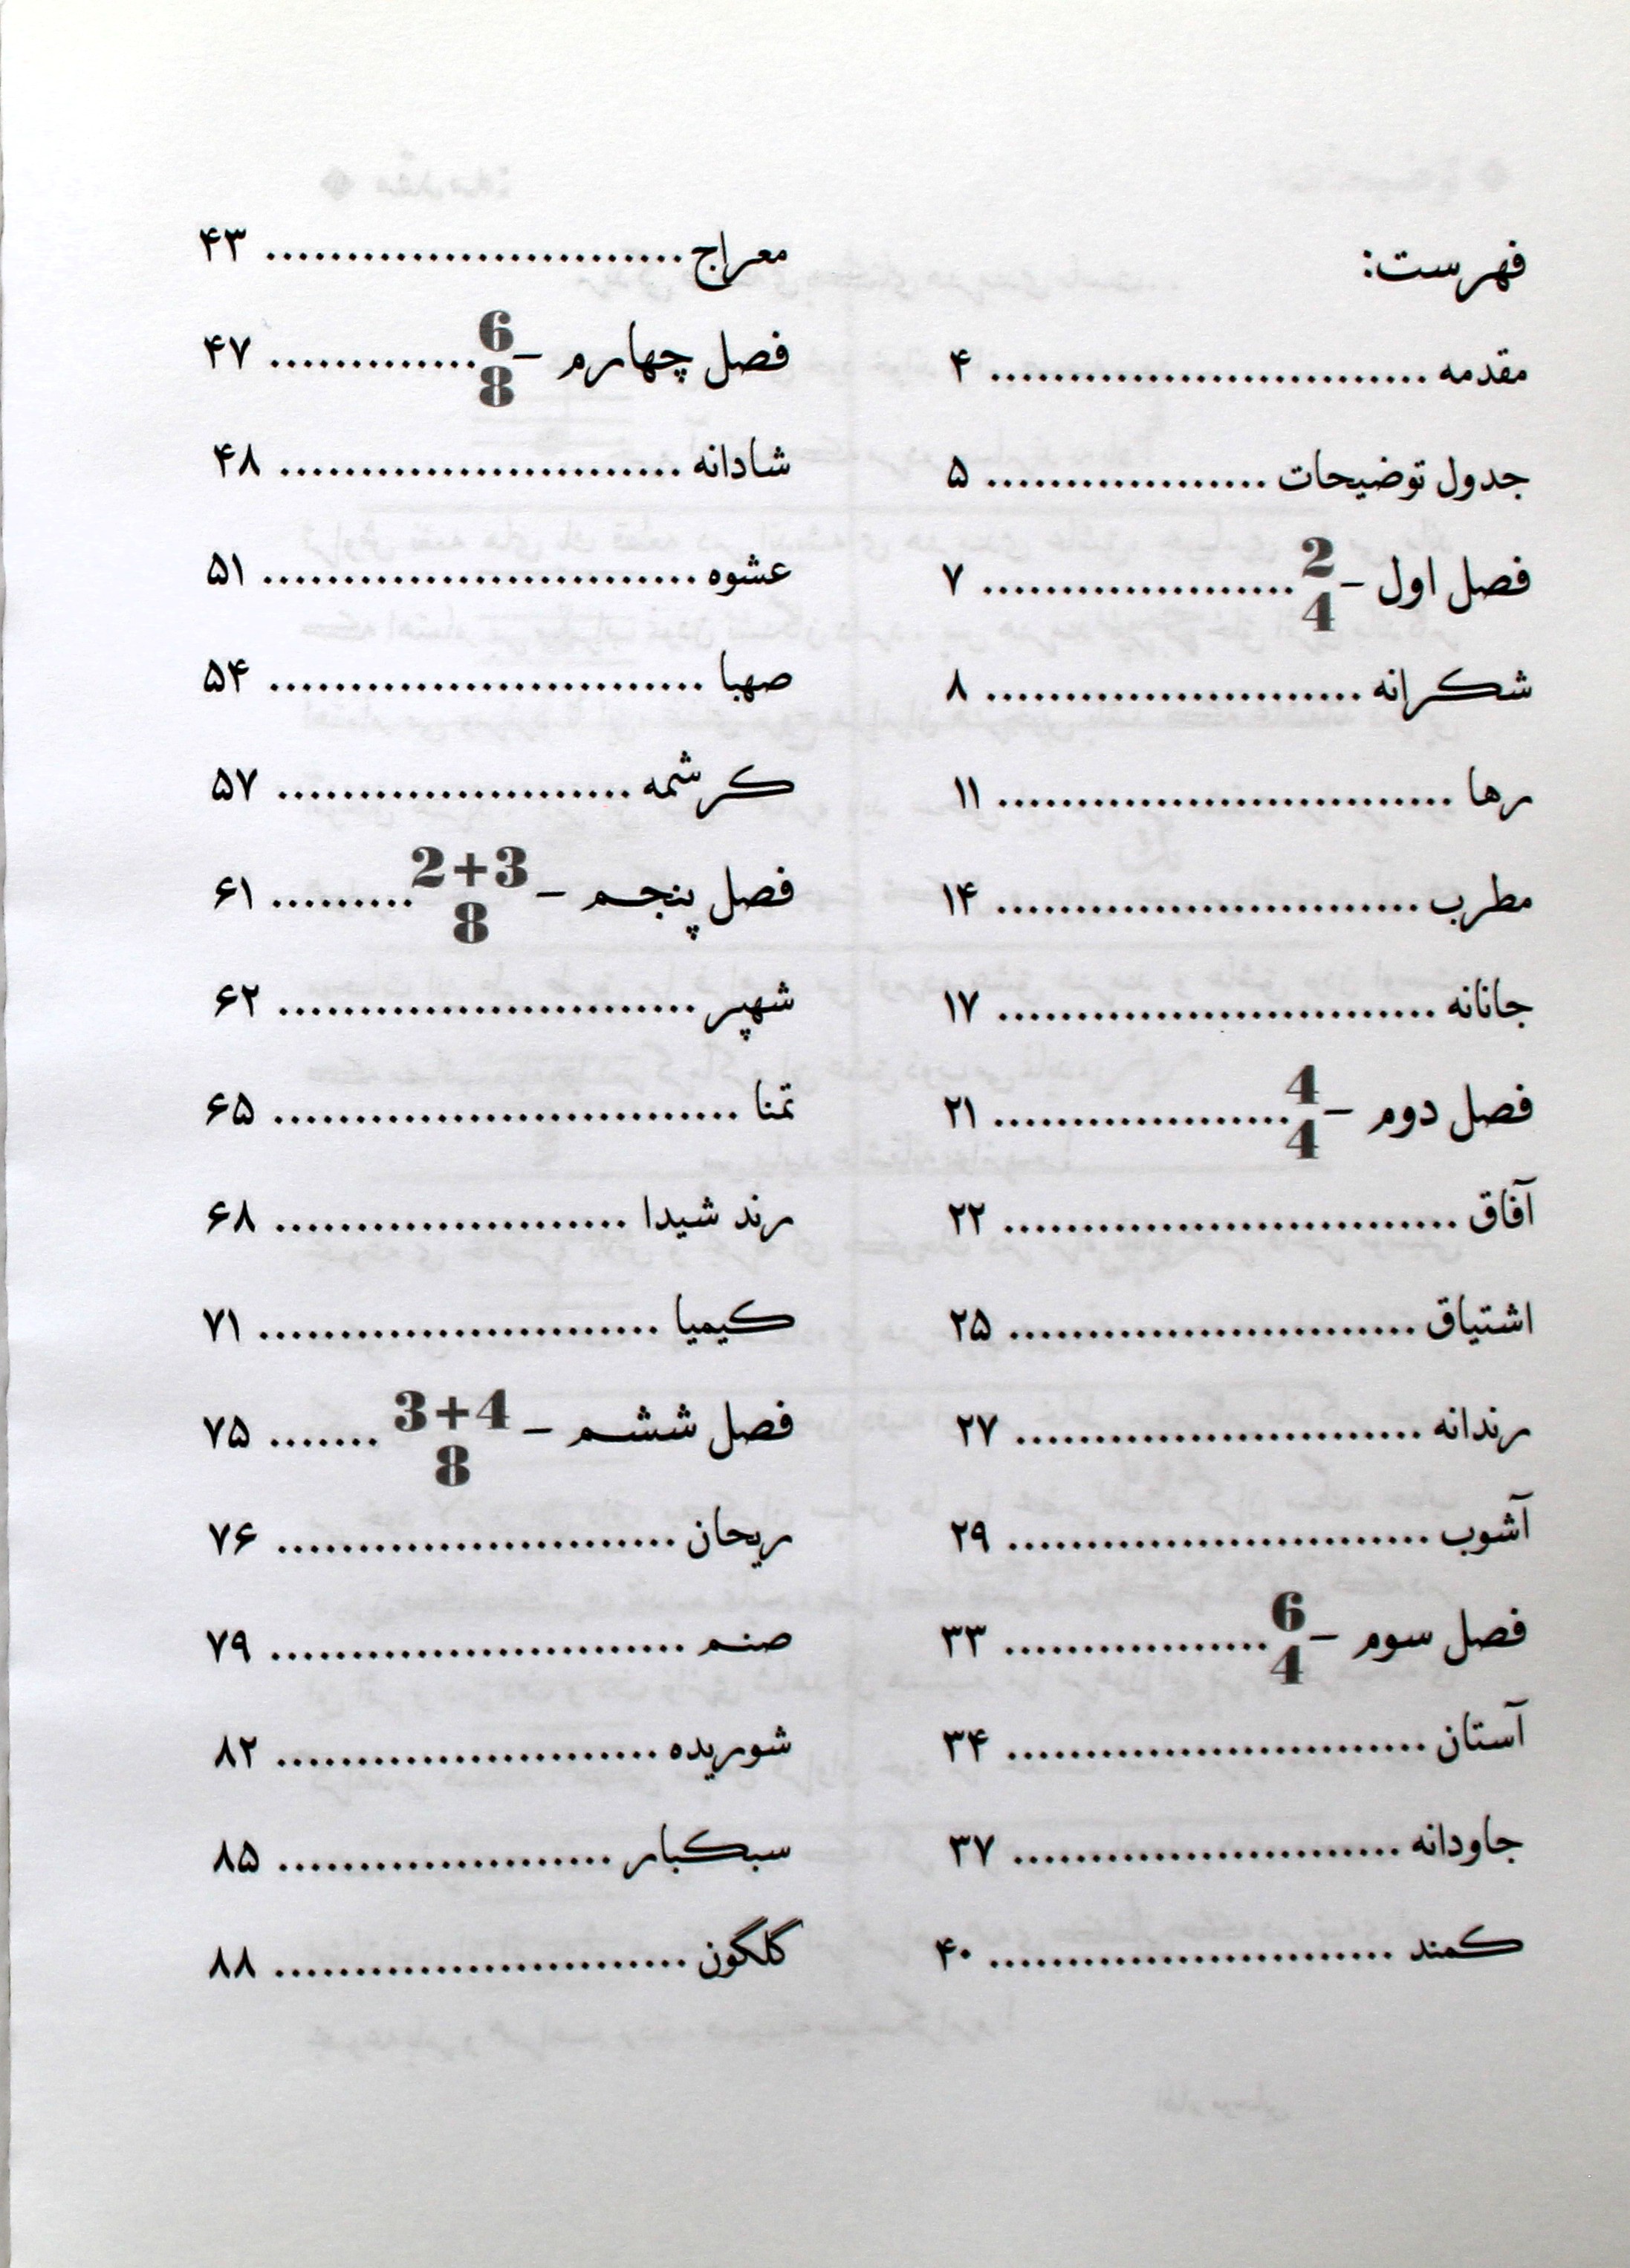 فهرست:
مقدمه ........................... ۴
جدول توضیحات .................. ۵
فصل اول – 2/4 .................... ۷
شکرانه ........................ ۸
رها ............................. ۱۱
مطرب ........................... ۱۴
جانانه ............................ ۱۷
فصل دوم – 4/4 ................... ۲۱
آفاق ............................. ۲۲
اشتیاق .......................... ۲۵
رندانه .......................... ۲۷
آشوب ........................... ۲۹
فصل سوم – 6/4 ................. ۳۳
آستان ........................... ۳۴
جاودانه ......................... ۳۷
کمند .......................... ۴۰
معراج ........................... ۴۳
فصل چهارم – 6/8 ............. ۴۷
شادانه .......................... ۴۸
عشوه ............................ ۵۱
صهبا ............................ ۵۴
کرشمه ....................... ۵۷
فصل پنجم – 2+3/8 ......... ۶۱
شهپر ........................... ۶۲
تمنا .............................. ۶۵
رند شیدا ....................... ۶۸
کیمیا .......................... ۷۱
فصل ششم – 3+4/8 ....... ۷۵
ریحان .......................... ۷۶
صنم ........................... ۷۹
شوریده ......................... ۸۲
سبکبار ...................... ۸۵
گلگون ........................... ۸۸